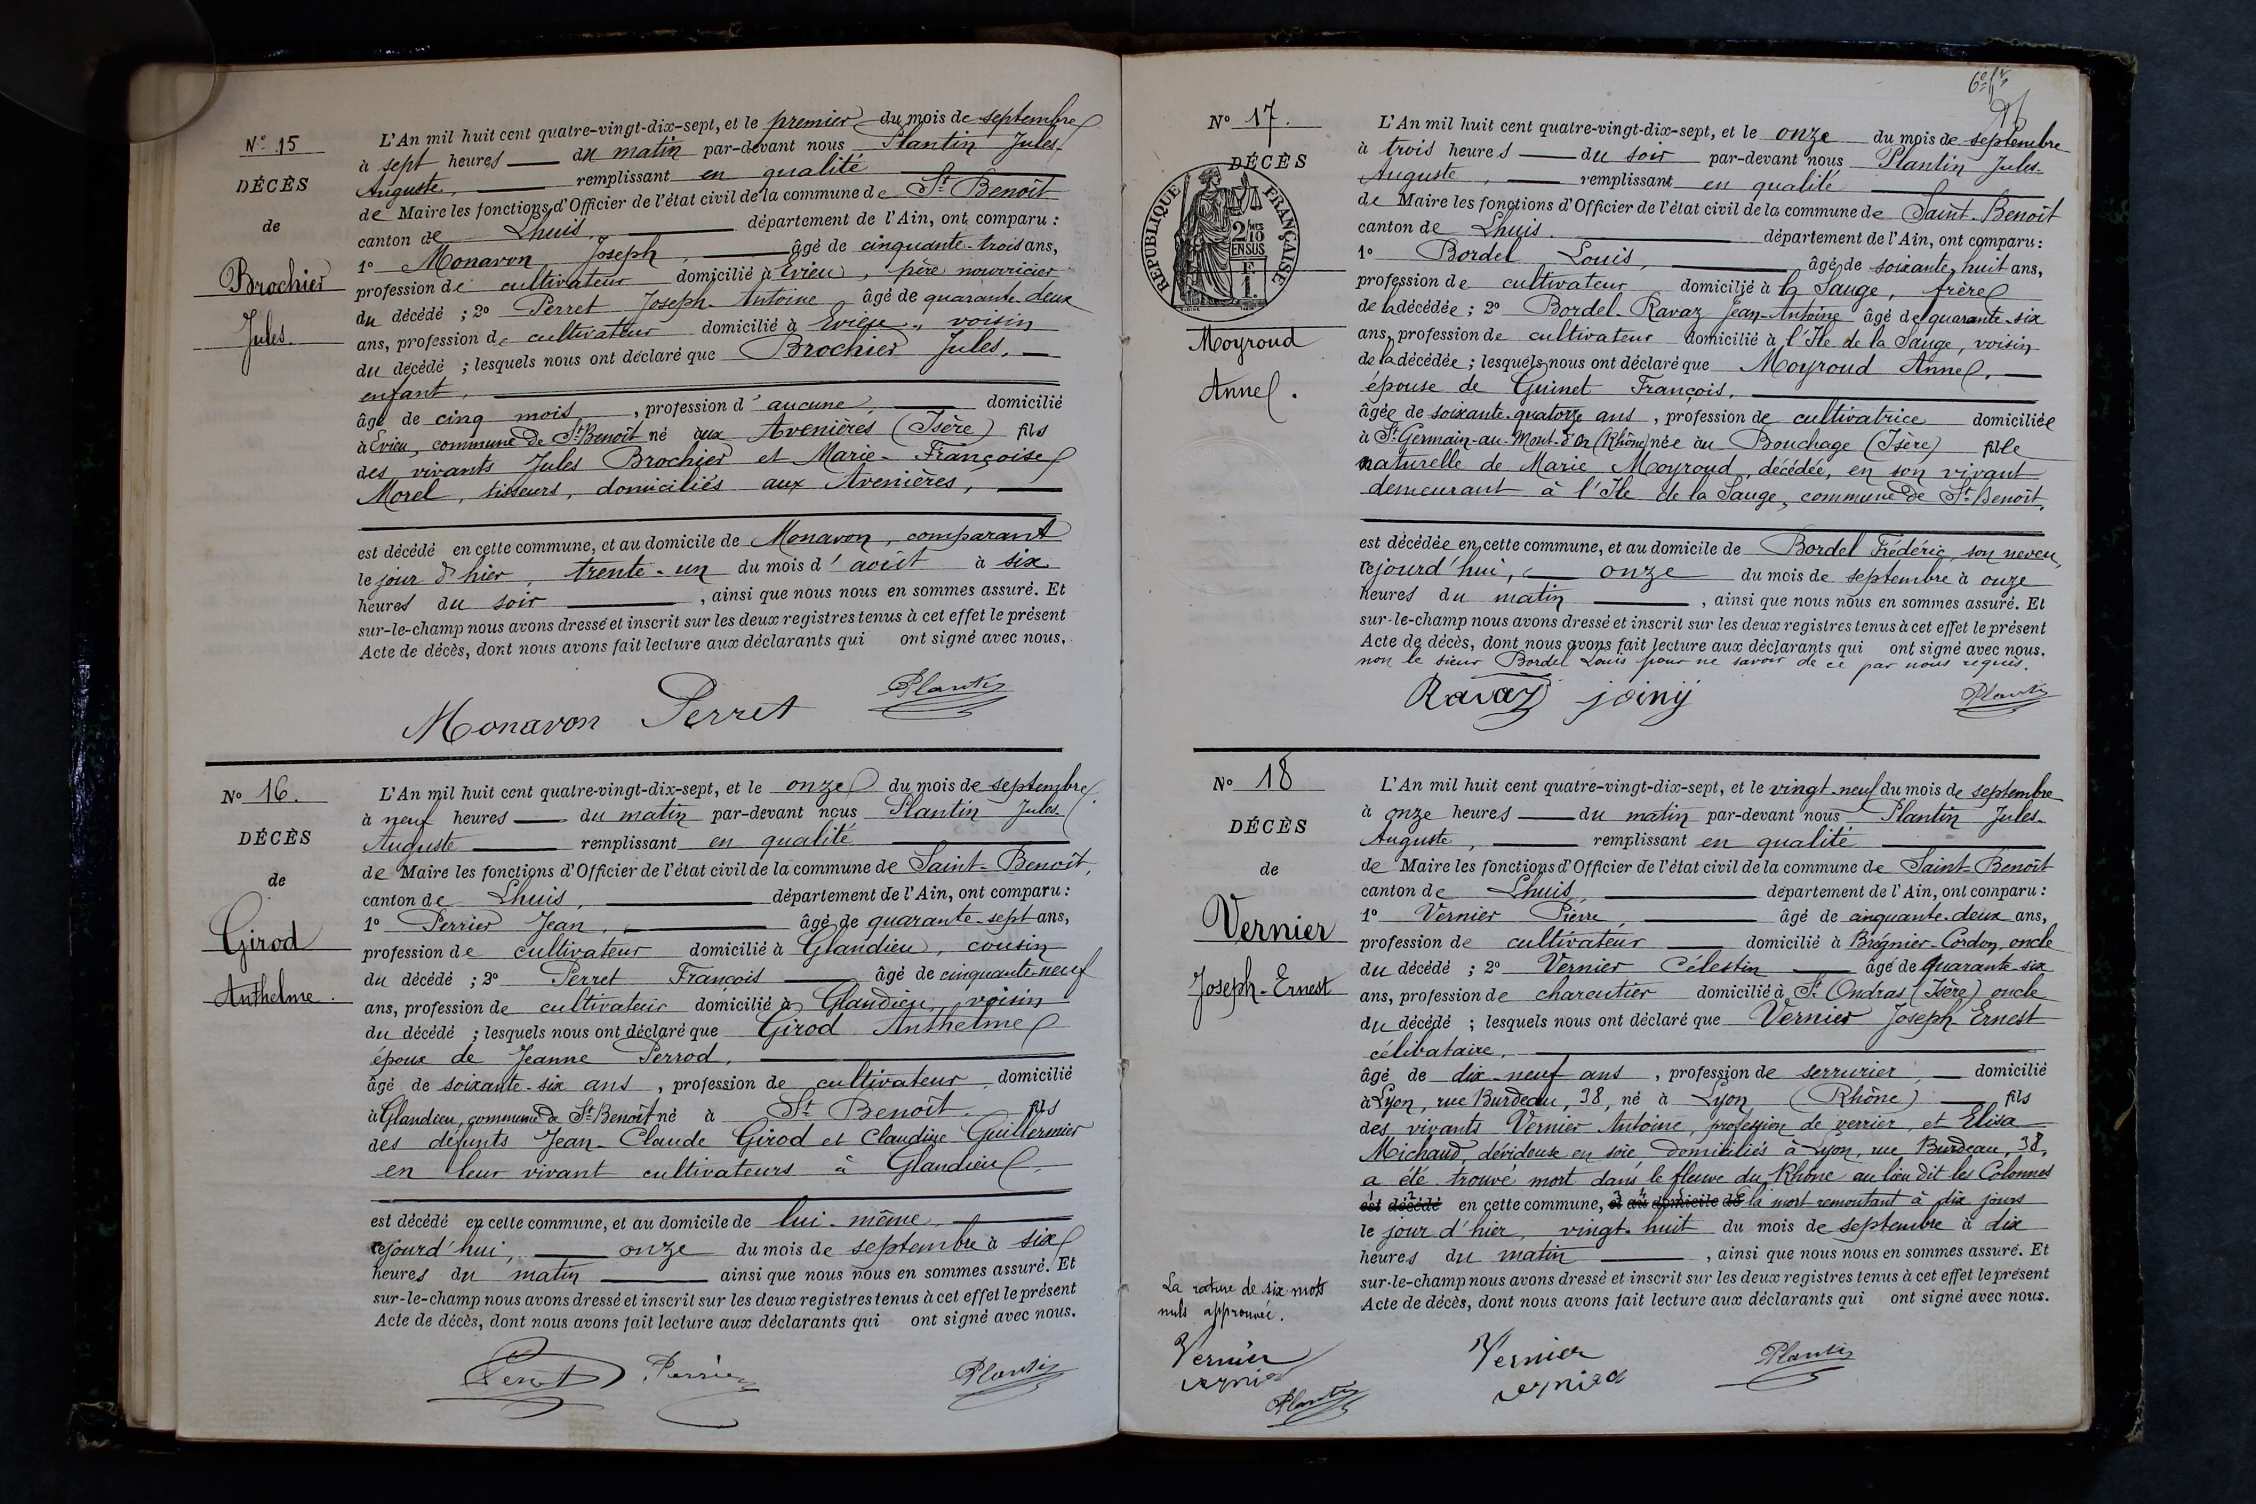 N° 15
DÉCÈS
de
Brochier
Jules
L'An mil huit cent quatre-vingt-dix-sept, et le premier du mois de septembre
à sept heures du matin par-devant nous Plantin Jules
Auguste, remplissant en qualité
de Maire les fonctions d'Officier de l'état civil de la commune de St Benoît
canton de Lhuis, département de l'Ain, ont comparu :
1° Monavon Joseph, âgé de cinquante-trois ans,
profession de cultivateur domicilié à Evieu, père nourricier
du décédé ; 2° Perret Joseph-Antoine âgé de quarante-deux
ans, profession de cultivateur domicilié à Evieu, voisin
du décédé ; lesquels nous ont déclaré que Brochier Jules,
enfant,
âgé de cinq mois, profession d'aucune, domicilié
à Evieu, commune de St Benoît né aux Avenières (Isère) fils
des vivants Jules Brochier et Marie-Françoise
Morel, tisseurs, domiciliés aux Avenières,
est décédé en cette commune, et au domicile de Monavon, comparant
le jour d'hier, trente-un du mois d'août à six
heures du soir, ainsi que nous nous en sommes assuré. Et
sur-le-champ nous avons dressé et inscrit sur les deux registres tenus à cet effet le présent
Acte de décès, dont nous avons fait lecture aux déclarants qui ont signé avec nous.
Monavon Perret Plantin
N° 16.
DÉCÈS
de
Girod
Anthelme.
L'An mil huit cent quatre-vingt-dix-sept, et le onze du mois de septembre
à neuf heures du matin par-devant nous Plantin Jules-
Auguste remplissant en qualité
de Maire les fonctions d'Officier de l'état civil de la commune de Saint-Benoît,
canton de Lhuis, département de l'Ain, ont comparu :
1° Perrier Jean, âgé de quarante-sept ans,
profession de cultivateur domicilié à Glandieu, cousin
du décédé ; 2° Perret François âgé de cinquante-neuf
ans, profession de cultivateur domicilié à Glandieu, voisin
du décédé ; lesquels nous ont déclaré que Girod Anthelme
époux de Jeanne Perrod,
âgé de soixante-six ans, profession de cultivateur, domicilié
à Glandieu, commune de St Benoît né à St Benoît fils
des défunts Jean-Claude Girod et Claudine Guillermier
en leur vivant cultivateurs à Glandieu,
est décédé en cette commune, et au domicile de lui-même,
cejourd'hui, onze du mois de septembre à six
heures du matin ainsi que nous nous en sommes assuré. Et
sur-le-champ nous avons dressé et inscrit sur les deux registres tenus à cet effet le présent
Acte de décès, dont nous avons fait lecture aux déclarants qui ont signé avec nous.
Perret Perrier Plantin
N° 17.
DÉCÈS
RÉPUBLIQUE FRANÇAISE
2/10 EN SUS
Moyroud
Anne.
L'An mil huit cent quatre-vingt-dix-sept, et le onze du mois de septembre
à trois heures du soir par-devant nous Plantin Jules-
Auguste, remplissant en qualité
de Maire les fonctions d'Officier de l'état civil de la commune de Saint-Benoît
canton de Lhuis. département de l'Ain, ont comparu :
1° Bordel Louis, âgé de soixante-huit ans,
profession de cultivateur domicilié à la Sauge, frère
de la décédée ; 2° Bordel-Ravaz Jean-Antoine âgé de quarante-six
ans, profession de cultivateur domicilié à l'Ile de la Sauge, voisin
de la décédée ; lesquels nous ont déclaré que Moyroud Anne,
épouse de Guinet François,
âgée de soixante-quatorze ans, profession de cultivatrice domiciliée
à St Germain-au-Mont-d'Or (Rhône) née au Bouchage (Isère) fille
naturelle de Marie Moyroud, décédée, en son vivant
demeurant à l'Ile de la Sauge, commune de St Benoît,
est décédée en cette commune, et au domicile de Bordel Frédéric, son neveu,
cejourd'hui, onze du mois de septembre à onze
heures du matin, ainsi que nous nous en sommes assuré. Et
sur-le-champ nous avons dressé et inscrit sur les deux registres tenus à cet effet le présent
Acte de décès, dont nous avons fait lecture aux déclarants qui ont signé avec nous.
non le sieur Bordel Louis pour ne savoir de ce par nous requis.
Ravaz Plantin
N° 18
DÉCÈS
de
Vernier
Joseph-Ernest
L'An mil huit cent quatre-vingt-dix-sept, et le vingt-neuf du mois de septembre
à onze heures du matin par-devant nous Plantin Jules-
Auguste, remplissant en qualité
de Maire les fonctions d'Officier de l'état civil de la commune de Saint-Benoît
canton de Lhuis, département de l'Ain, ont comparu :
1° Vernier Pierre, âgé de cinquante-deux ans,
profession de cultivateur domicilié à Brégnier-Cordon, oncle
du décédé ; 2° Vernier Célestin âgé de quarante-six
ans, profession de charcutier domicilié à St Ondras (Isère) oncle
du décédé ; lesquels nous ont déclaré que Vernier Joseph Ernest
célibataire,
âgé de dix-neuf ans, profession de serrurier, domicilié
à Lyon, rue Burdeau, 38, né à Lyon (Rhône) fils
des vivants Vernier Antoine, profession de verrier, et Elisa
Michaud, dévideuse en soie, domiciliés à Lyon, rue Burdeau, 38,
a été trouvé mort dans le fleuve du Rhône au lieu dit les Colonnes
est décédé en cette commune, et au domicile de la mort remontant à dix jours
le jour d'hier, vingt-huit du mois de septembre à dix
heures du matin, ainsi que nous nous en sommes assuré. Et
sur-le-champ nous avons dressé et inscrit sur les deux registres tenus à cet effet le présent
Acte de décès, dont nous avons fait lecture aux déclarants qui ont signé avec nous.
La rature de six mots
nuls approuvée.
Vernier
vernier
Plantin
Vernier
vernier
Plantin